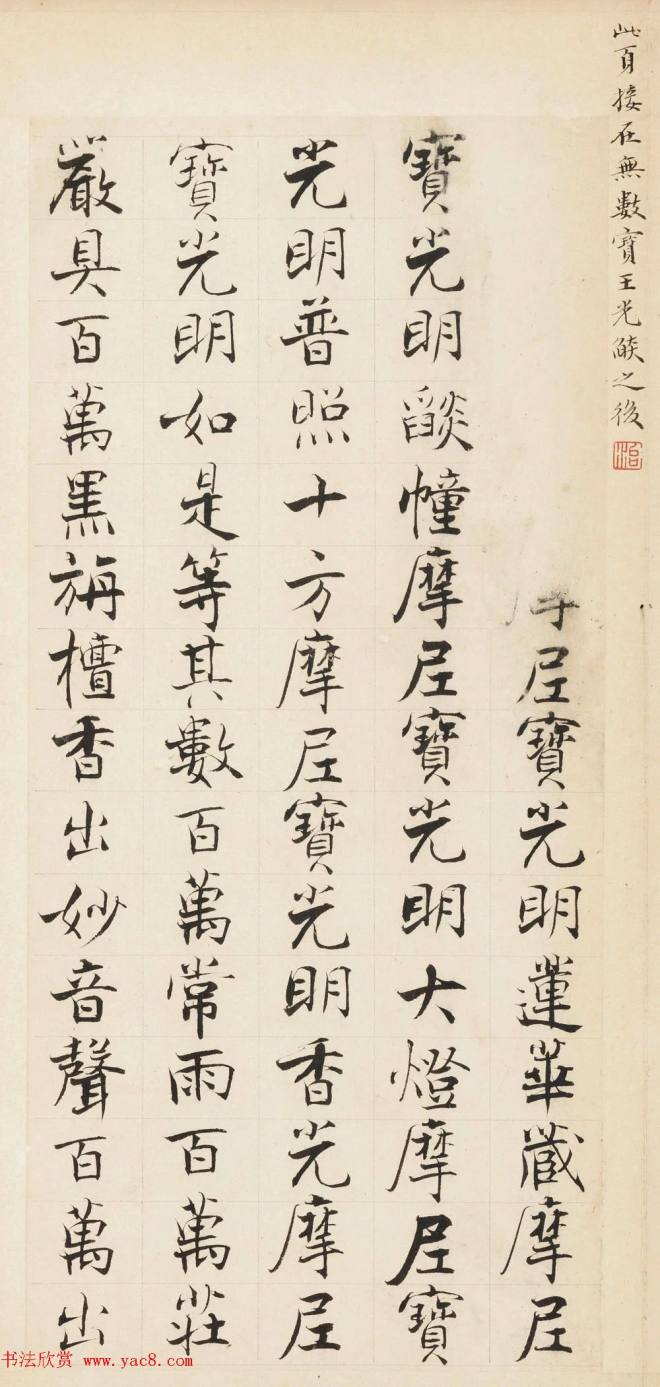 此頁接在無數寶王光燄之後
摩尼寶光明蓮華藏摩尼
寶光明燄幢摩尼寶光明大燈摩尼寶
光明普照十方摩尼寶光明香光摩尼
寶光明如是等其數百萬常雨百萬莊
嚴具百萬黑旃檀香出妙音聲百萬出
书法欣赏 www.yac8.com